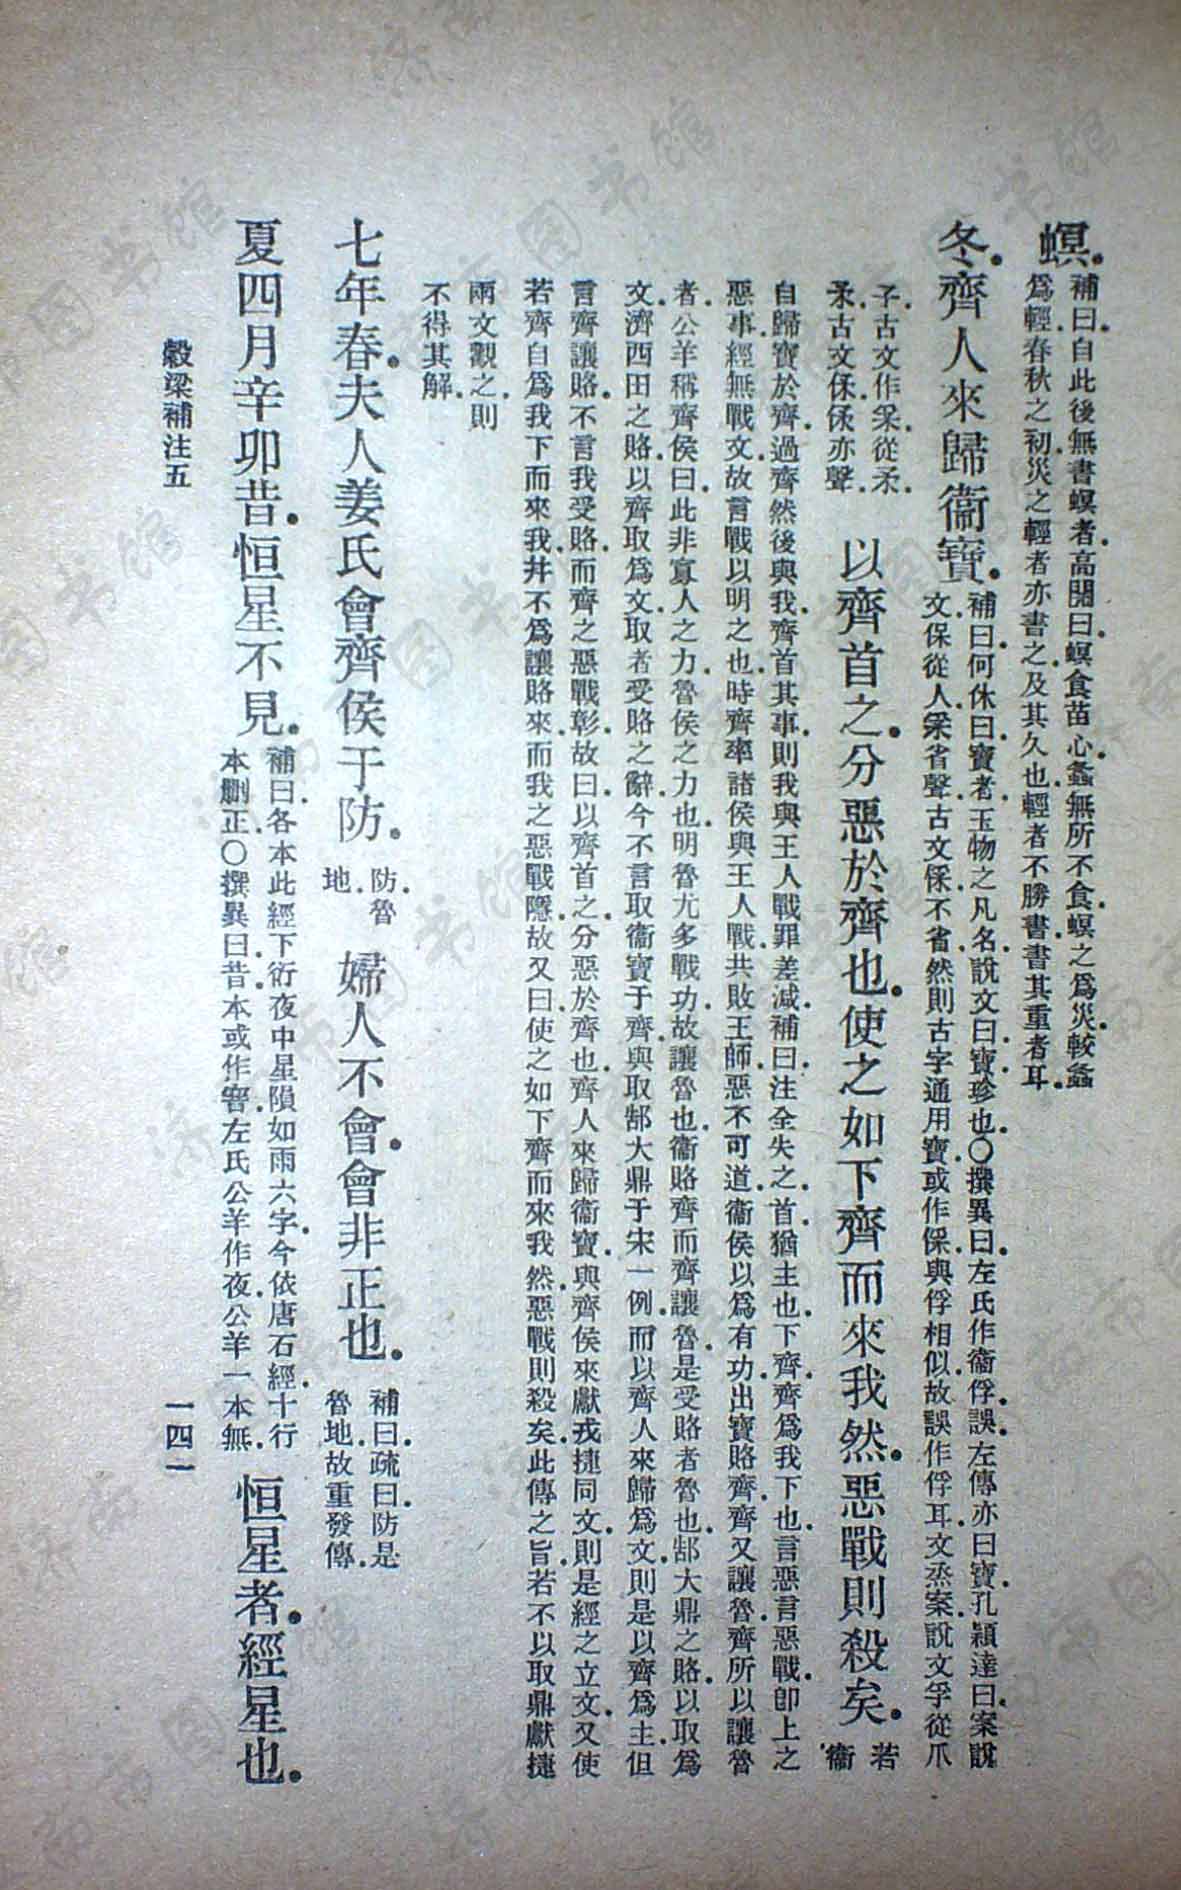 螟。補曰。自此後無書螟者。高閌曰。螟食苗心。螽無所不食。螟之爲災。較螽
爲輕。春秋之初。災之輕者亦書之。及其久也。輕者不勝書。書其重者耳。
冬。齊人來歸衞寶。補曰。何休曰。寶者。玉物之凡名。說文曰。寶。珍也。〇撰異曰。左氏作衞俘。誤。左傳亦曰寶。孔穎達曰。案說
文。保從人。𤓽省聲。古文保不省。然則古字通用。寶或作保。與俘相似。故誤作俘耳。文烝案。說文孚從爪
子。古文作𤓽。從𤓽。
𤓽。古文保。保亦聲。
以齊首之。分惡於齊也。使之如下齊而來我然。惡戰則殺矣。若
衞
自歸寶於齊。過齊然後與我。齊首其事。則我與王人戰。罪差減。補曰。注全失之。首。猶主也。下齊。齊爲我下也。言惡言惡戰。卽上之
惡事。經無戰文。故言戰以明之也。時齊率諸侯與王人戰。共敗王師。惡不可道。衞侯以爲有功。出寶賂齊。齊又讓魯。齊所以讓魯
者。公羊稱齊侯曰。此非寡人之力。魯侯之力也。明魯尤多戰功。故讓魯也。衞賂齊而齊讓魯。是受賂者魯也。郜大鼎之賂。以取爲
文。濟西田之賂。以齊取爲文。取者。受賂之辭。今不言取衞寶于齊。與取郜大鼎于宋一例。而以齊人來歸爲文。則是以齊爲主。但
言齊讓賂。不言我受賂。而齊之惡戰彰。故曰以齊首之。分惡於齊也。齊人來歸衞寶。與齊侯來獻戎捷同文。則是經之立文。又使
若齊自爲我下而來我。幷不爲讓賂來。而我之惡戰隱。故又曰使之如下齊而來我然。惡戰則殺矣。此傳之旨。若不以取鼎獻捷
兩文觀之。則
不得其解。
七年春。夫人姜氏會齊侯于防。防。魯
地。
婦人不會。會非正也。補曰。疏曰。防是
魯地。故重發傳。
夏四月辛卯昔。恒星不見。補曰。各本此經下衍夜中星隕如雨六字。今依唐石經。十行
本刪正。〇撰異曰。昔。本或作䆘。左氏公羊作夜。公羊一本無。
恒星者。經星也。
穀梁補注五
一四一